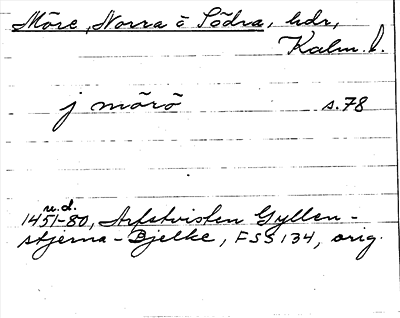 Möre, Norra o Södra, hdr,
Kalm. l.
j mörö s.78
u.d.
1451-80, Arfstvisten Gyllen-
stjerna-Bjelke, FSS 134, orig.